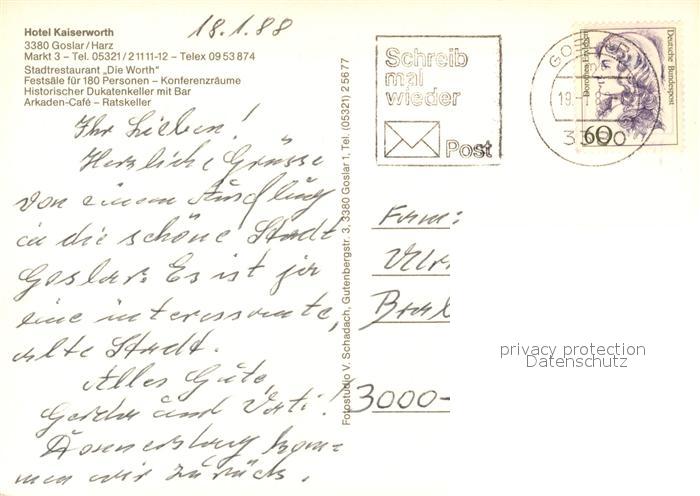 18.1.88
Hotel Kaiserworth
3380 Goslar/Harz
Markt 3 – Tel. 05321/21111-12 – Telex 0953874
Stadtrestaurant „Die Worth"
Festsäle für 180 Personen – Konferenzräume
Historischer Dukatenkeller mit Bar
Arkaden-Café – Ratskeller
Ihr Lieben!
Herzliche Grüsse
von einem Ausflug
in die schöne Stadt
Goslar. Es ist ja
eine interessante,
alte Stadt.
Alles Gute,
Gerda und Vati!
Donnerstag kom=
men wir zurück.
Fotostudio V. Schadach, Gutenbergstr. 3, 3380 Goslar 1, Tel. (05321) 25677
Schreib
mal
wieder
Post
GOSLAR
19.-1.8
3380
Deutsche Bundespost
60
Fam:
Ulr
3000-
privacy protection
Datenschutz